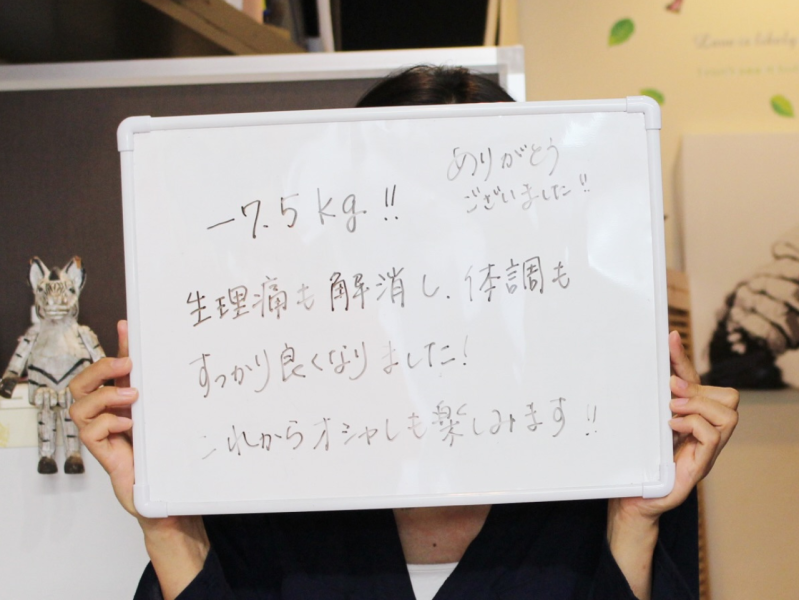 ありがとう
ございました!!
-7.5kg!!
生理痛も解消し、体調も
すっかり良くなりました!
これからオシャレも楽しみます!!
Love is likely